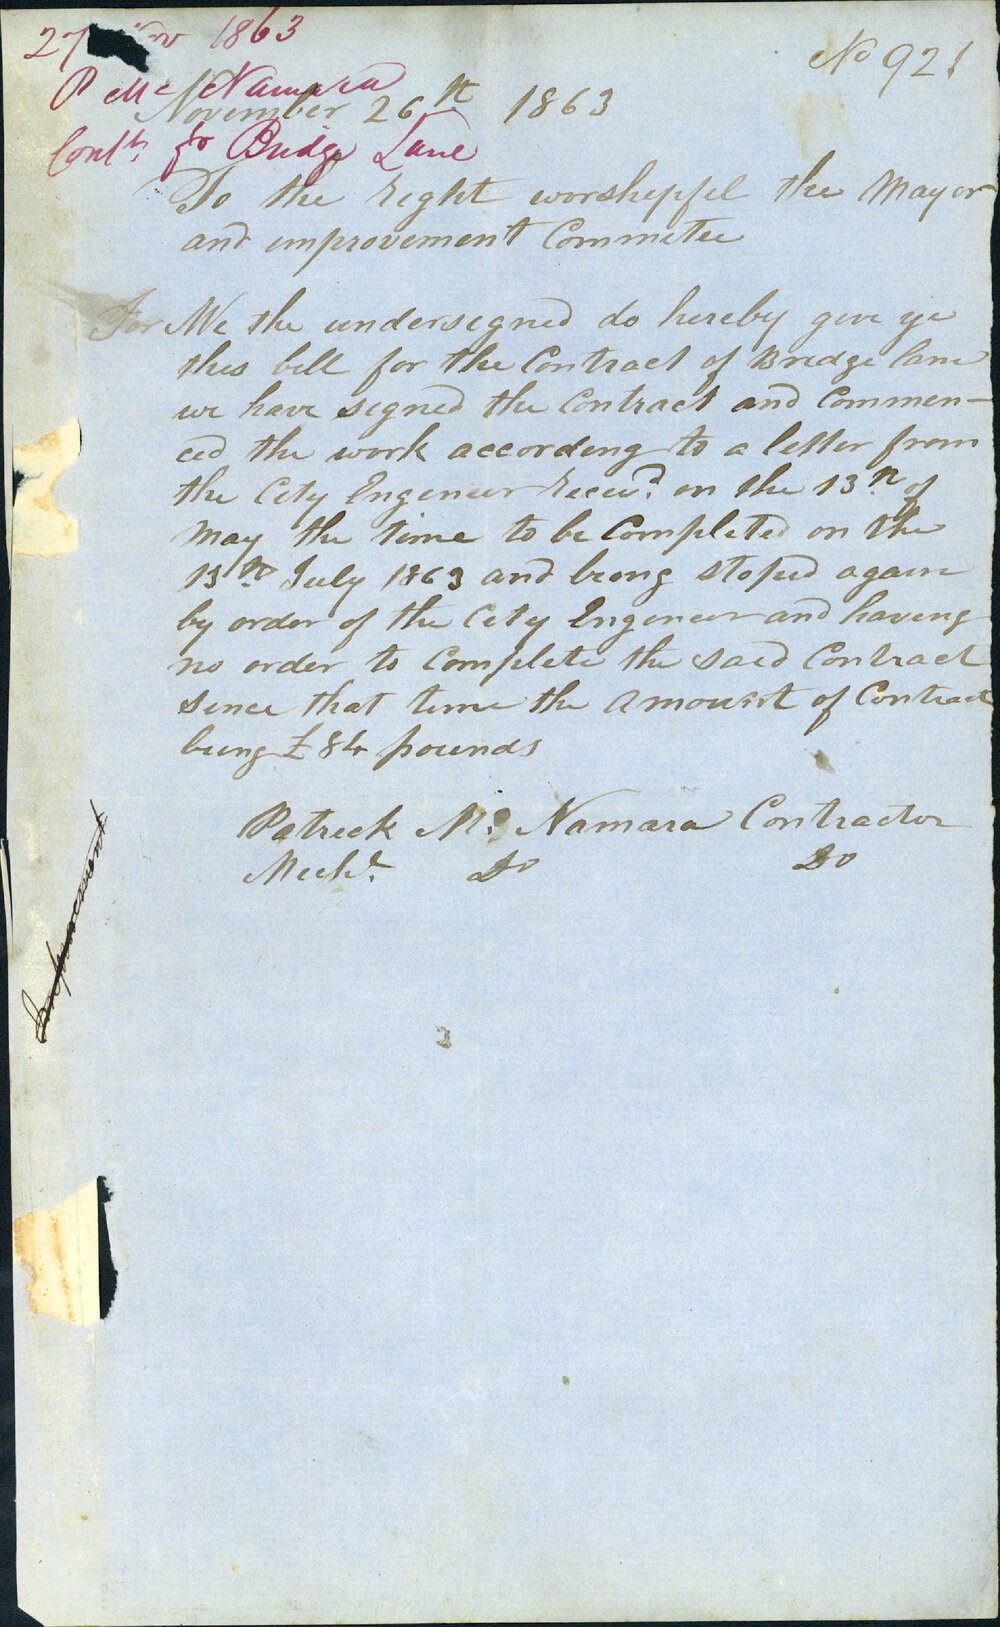 27 Nov 1863
No 921
P McNamara
November 26th 1863
Contr. for Bridge Lane
To the Right worshepfel the Mayor
and improvement Commitee
For We the undersegned do hereby give ye
this bell for the Contract of Bredge lane
we have segned the Contract and Commen-
ced the work accordeng to a letter from
the Cety Engeneer Receivd. on the 13th. of
May the time to be Completed on the
13th July 1863 and being stoped again
by order of the Cety Engeneer and having
no order to Complete the said Contract
sence that time the Amount of Contract
being £84 pounds
Patreck Mc Namara Contractor
Mechl. Do Do
Improvement